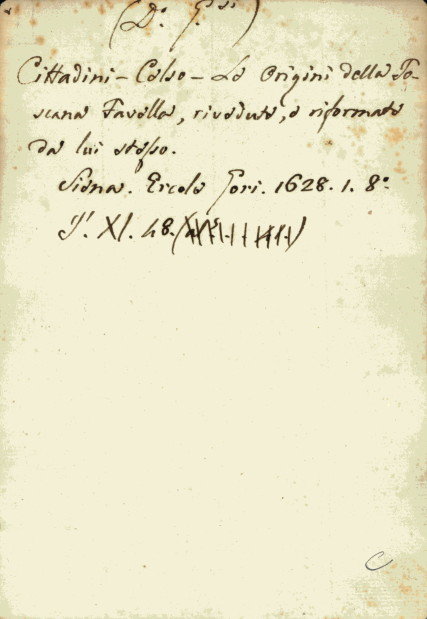 Cittadini - Celso - Le Origini della To-
scana Favella, rivedute, e riformate
da lui stesso.
Siena. Ercole Gori. 1628. 1. 8º
XI. 48.
C